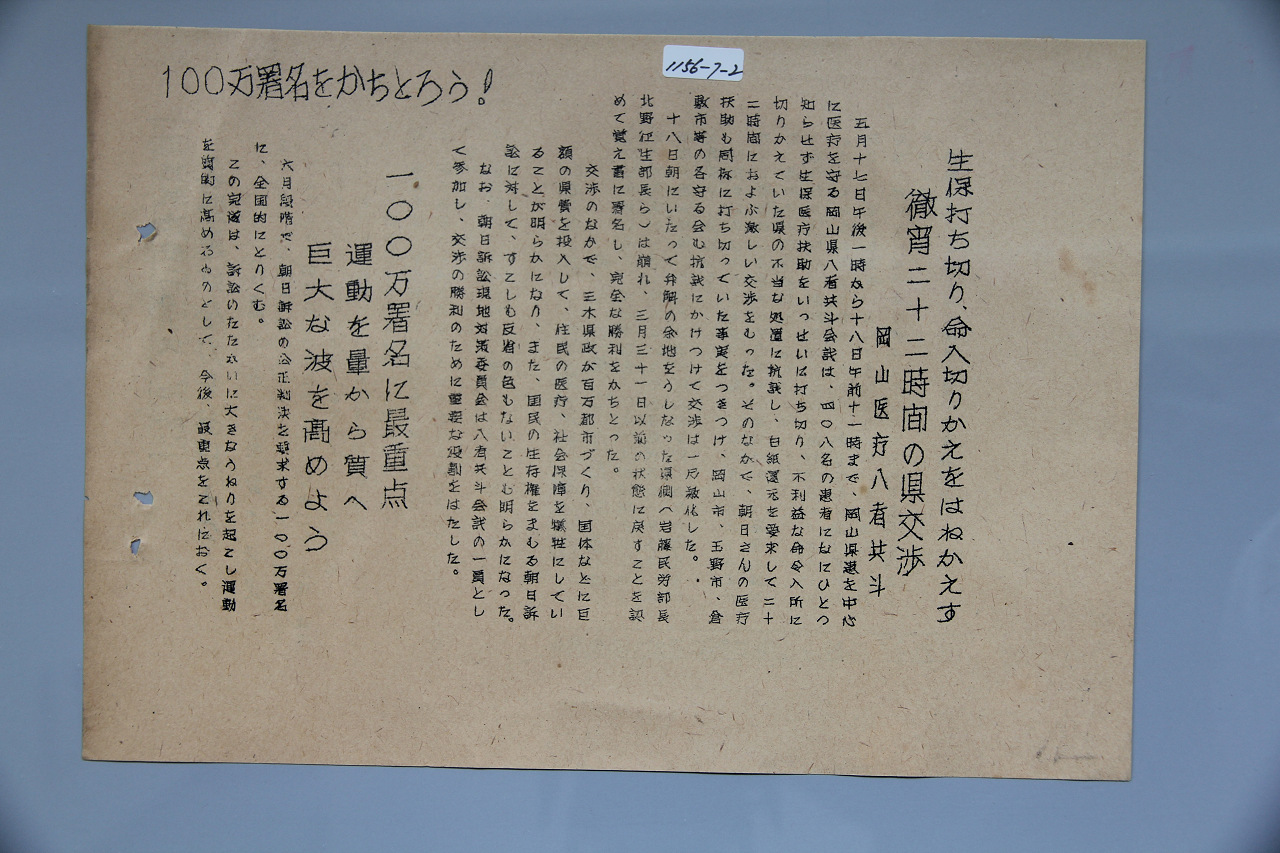 1156-7-2
100万署名をかちとろう!
生保打ち切り、命入切りかえをはねかえす
徹宵二十二時間の県交渉
岡山医疗八者共斗
五月十七日午後一時から十八日午前十一時まで、岡山県庁を中心
に医疗を守る岡山県八者共斗会議は、四〇八名の患者になにひとつ
知らせず生保医疗扶助をいっせいに打ち切り、不利益な命令入所に
切りかえていた県の不当な処置に抗議し、白紙還元を要求して二十
二時間におよぶ激しい交渉をもった。そのなかで、朝日さんの医疗
扶助も同様に打ち切っていた事実をつきつけ、岡山市、玉野市、倉
敷市等の各守る会も抗議にかけつけて交渉は一段激化した。
十八日朝にいたって弁解の余地をうしなった県側(岩藤民労部長
北野衛生部長ら)は崩れ、三月三十一日以前の状態に戻すことを認
めて覚え書に署名し、完全な勝利をかちとった。
交渉のなかで、三木県政が百万都市づくり、国体などに巨
額の県費を投入して、住民の医疗、社会保障を犠牲にしてい
ることが明らかになり、また、国民の生存権をまもる朝日訴
訟に対して、すこしも反省の色もないことも明らかになった。
なお、朝日訴訟現地対策委員会は八者共斗会議の一員とし
て参加し、交渉の勝利のために重要な役割をはたした。
一〇〇万署名に最重点
運動を量から質へ
巨大な波を高めよう
六月段階で、朝日訴訟の公正判決を要求する一〇〇万署名
に、全国的にとりくむ。
この完遂は、訴訟のたたかいに大きなうねりを起こし運動
を質的に高めるものとして、今後、最重点をこれにおく。